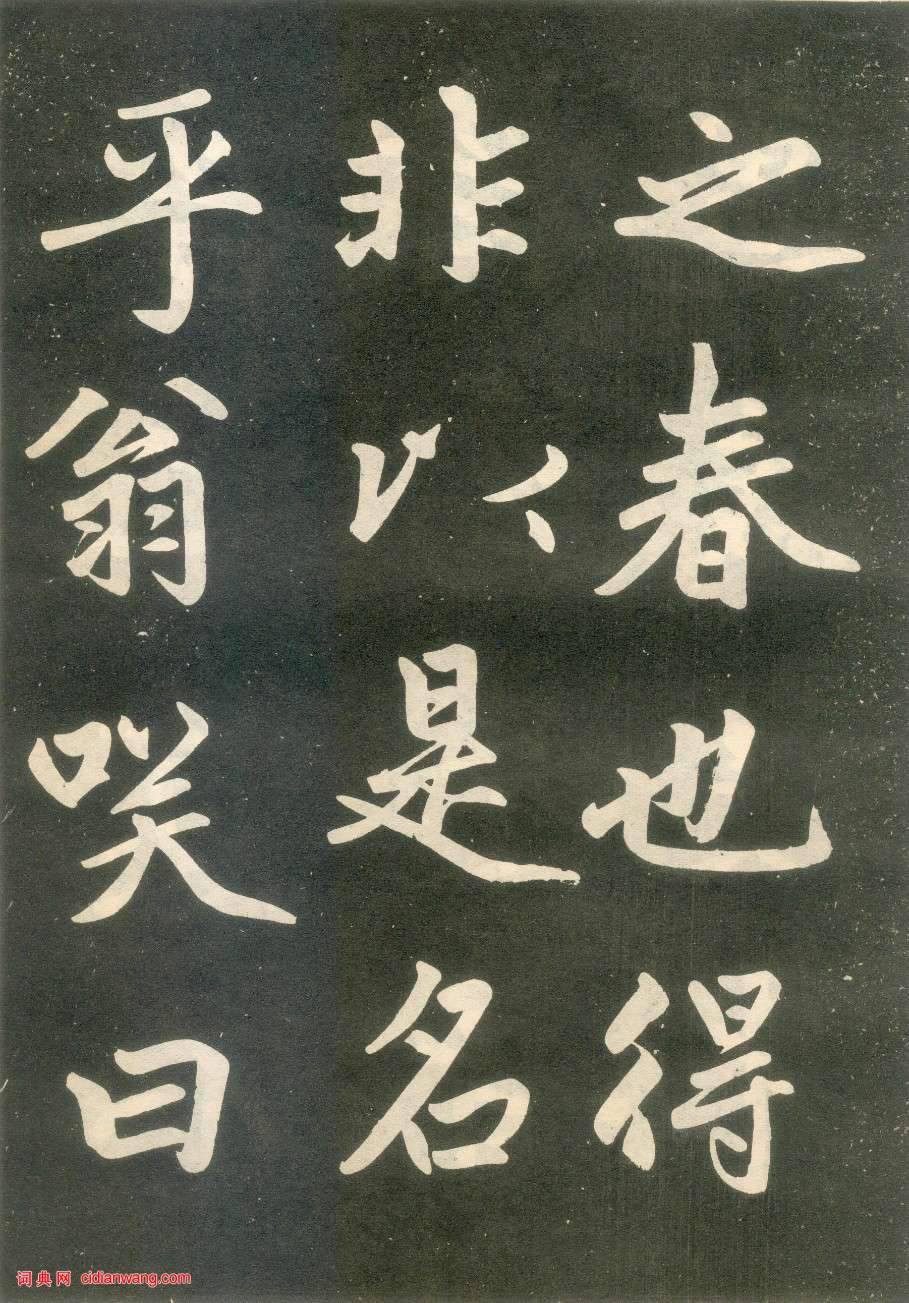 之春也得
非以是名
乎翁笑曰
词典网 cidianwang.com